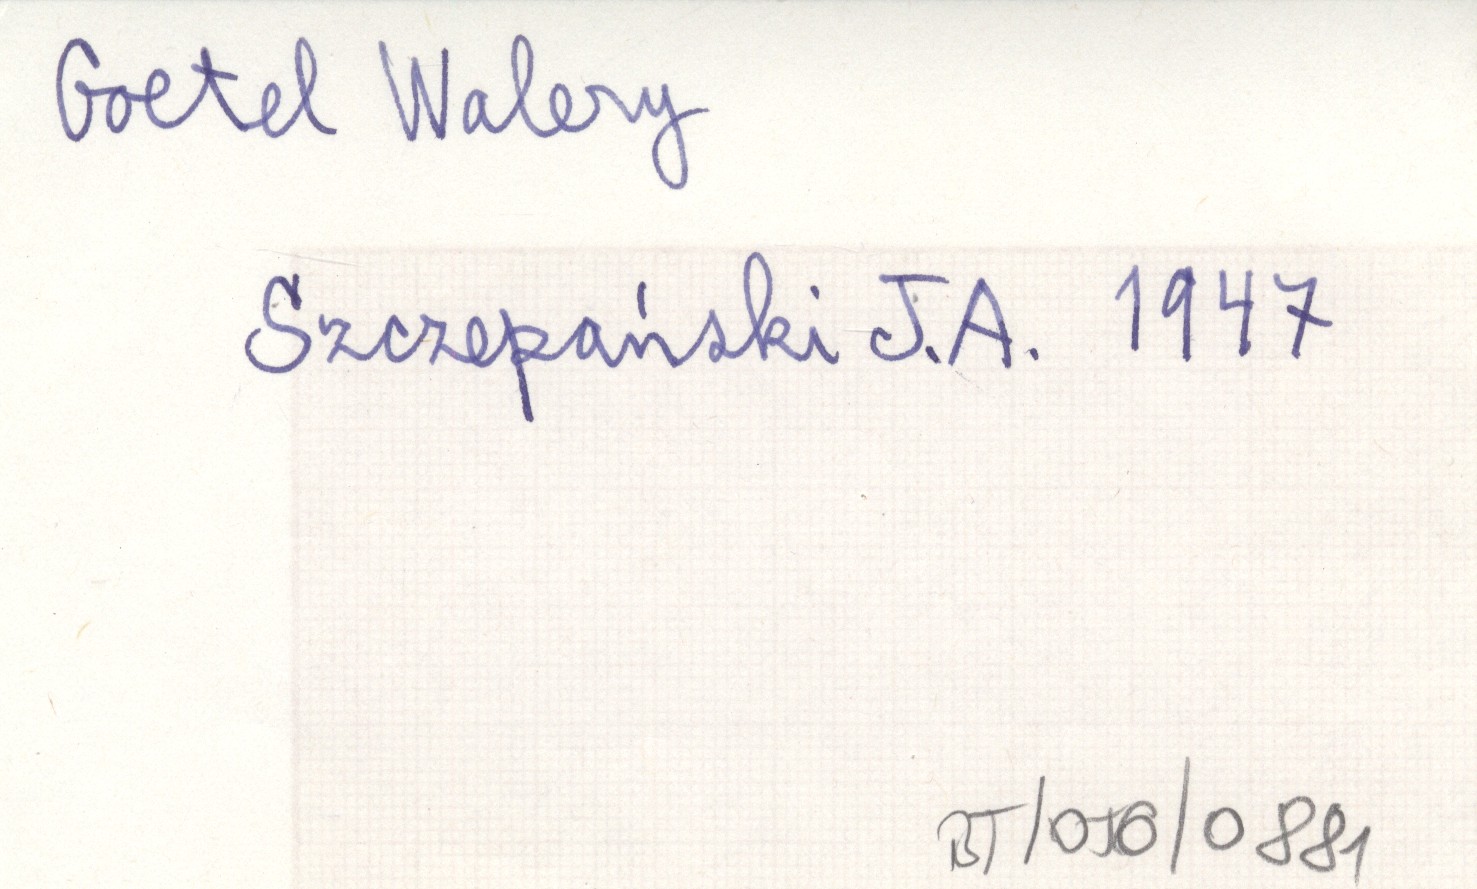 Goetel Walery
Szczepański J.A. 1947
BT/OJG/0881